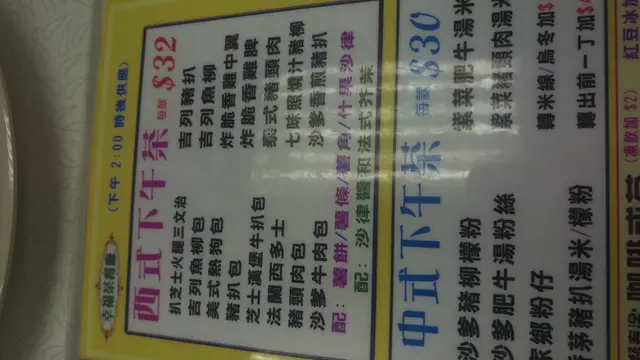 幸福茶餐廳
(下午 2:00 時後供應)
西式下午茶 每款 $32
扒芝士火腿三文治
吉列魚柳包
美式熱狗包
豬扒包
芝士漢堡牛扒包
法蘭西多士
豬頸肉包
沙爹牛肉包
吉列豬扒
吉列魚柳
炸脆香雞中翼
炸脆香雞脾
泰式豬頸肉
七味照燒汁豬柳
沙爹香煎豬扒
配: 薯餅/薯條/薯角/什果沙律
配: 沙律醬和法式芥茉
中式下午茶 每款 $30
沙爹豬柳檬粉
沙爹肥牛湯粉絲
鄉粉仔
茅豬扒湯米/檬粉
紫菜肥牛湯米
紫菜豬頸肉湯米
轉米線/烏冬加$
轉出前一丁加$4
(凍飲加 $2)
紅豆冰加